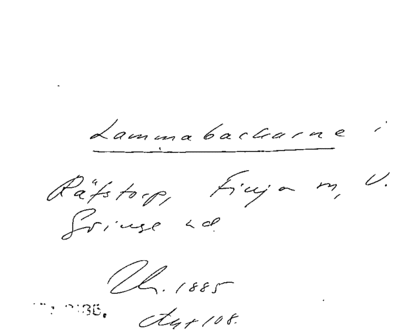 Lammabackarne i
Räfstorp, Finja m, V.
Göinge hd.
1885
Akt 108.